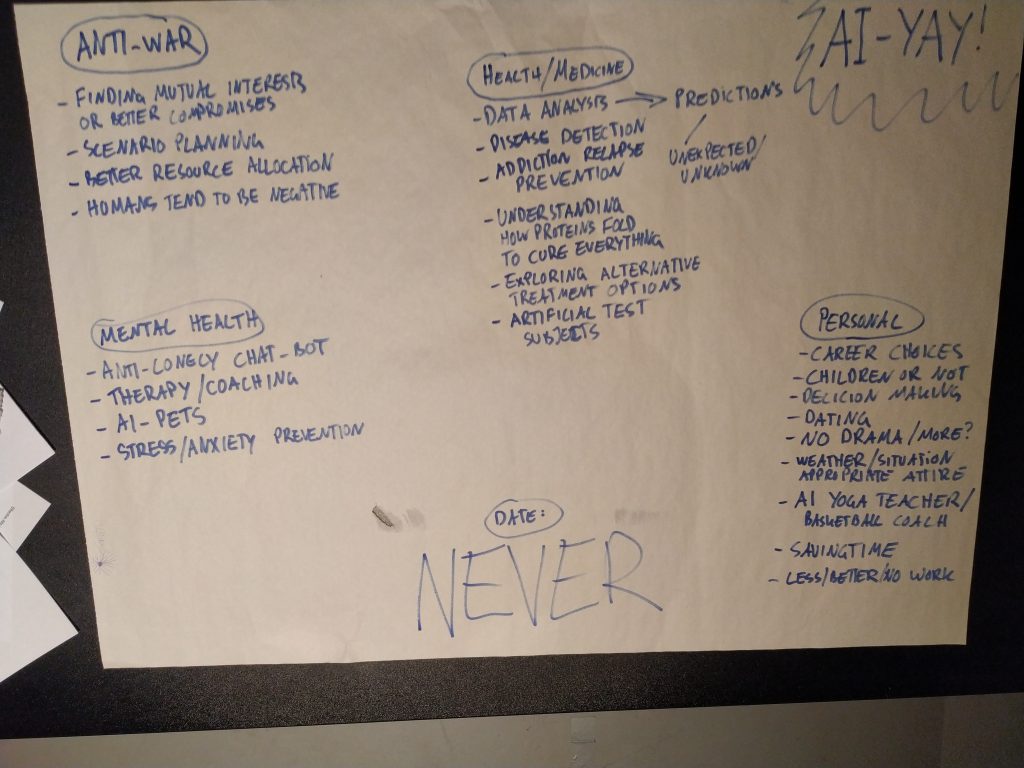 AI-YAY!
ANTI-WAR
- FINDING MUTUAL INTERESTS
OR BETTER COMPROMISES
- SCENARIO PLANNING
- BETTER RESOURCE ALLOCATION
- HUMANS TEND TO BE NEGATIVE
HEALTH/MEDICINE
- DATA ANALYSIS → PREDICTIONS
UNEXPECTED/
UNKNOWN
- DISEASE DETECTION
- ADDICTION RELAPSE
PREVENTION
- UNDERSTANDING
HOW PROTEINS FOLD
TO CURE EVERYTHING
- EXPLORING ALTERNATIVE
TREATMENT OPTIONS
- ARTIFICIAL TEST
SUBJECTS
MENTAL HEALTH
- ANTI-LONELY CHAT-BOT
- THERAPY/COACHING
- AI-PETS
- STRESS/ANXIETY PREVENTION
PERSONAL
- CAREER CHOICES
- CHILDREN OR NOT
- DECICION MAKING
- DATING
- NO DRAMA/MORE?
- WEATHER/SITUATION
APPROPRIATE ATTIRE
- AI YOGA TEACHER/
BASKETBALL COACH
- SAVINGTIME
- LESS/BETTER/NO WORK
DATE:
NEVER